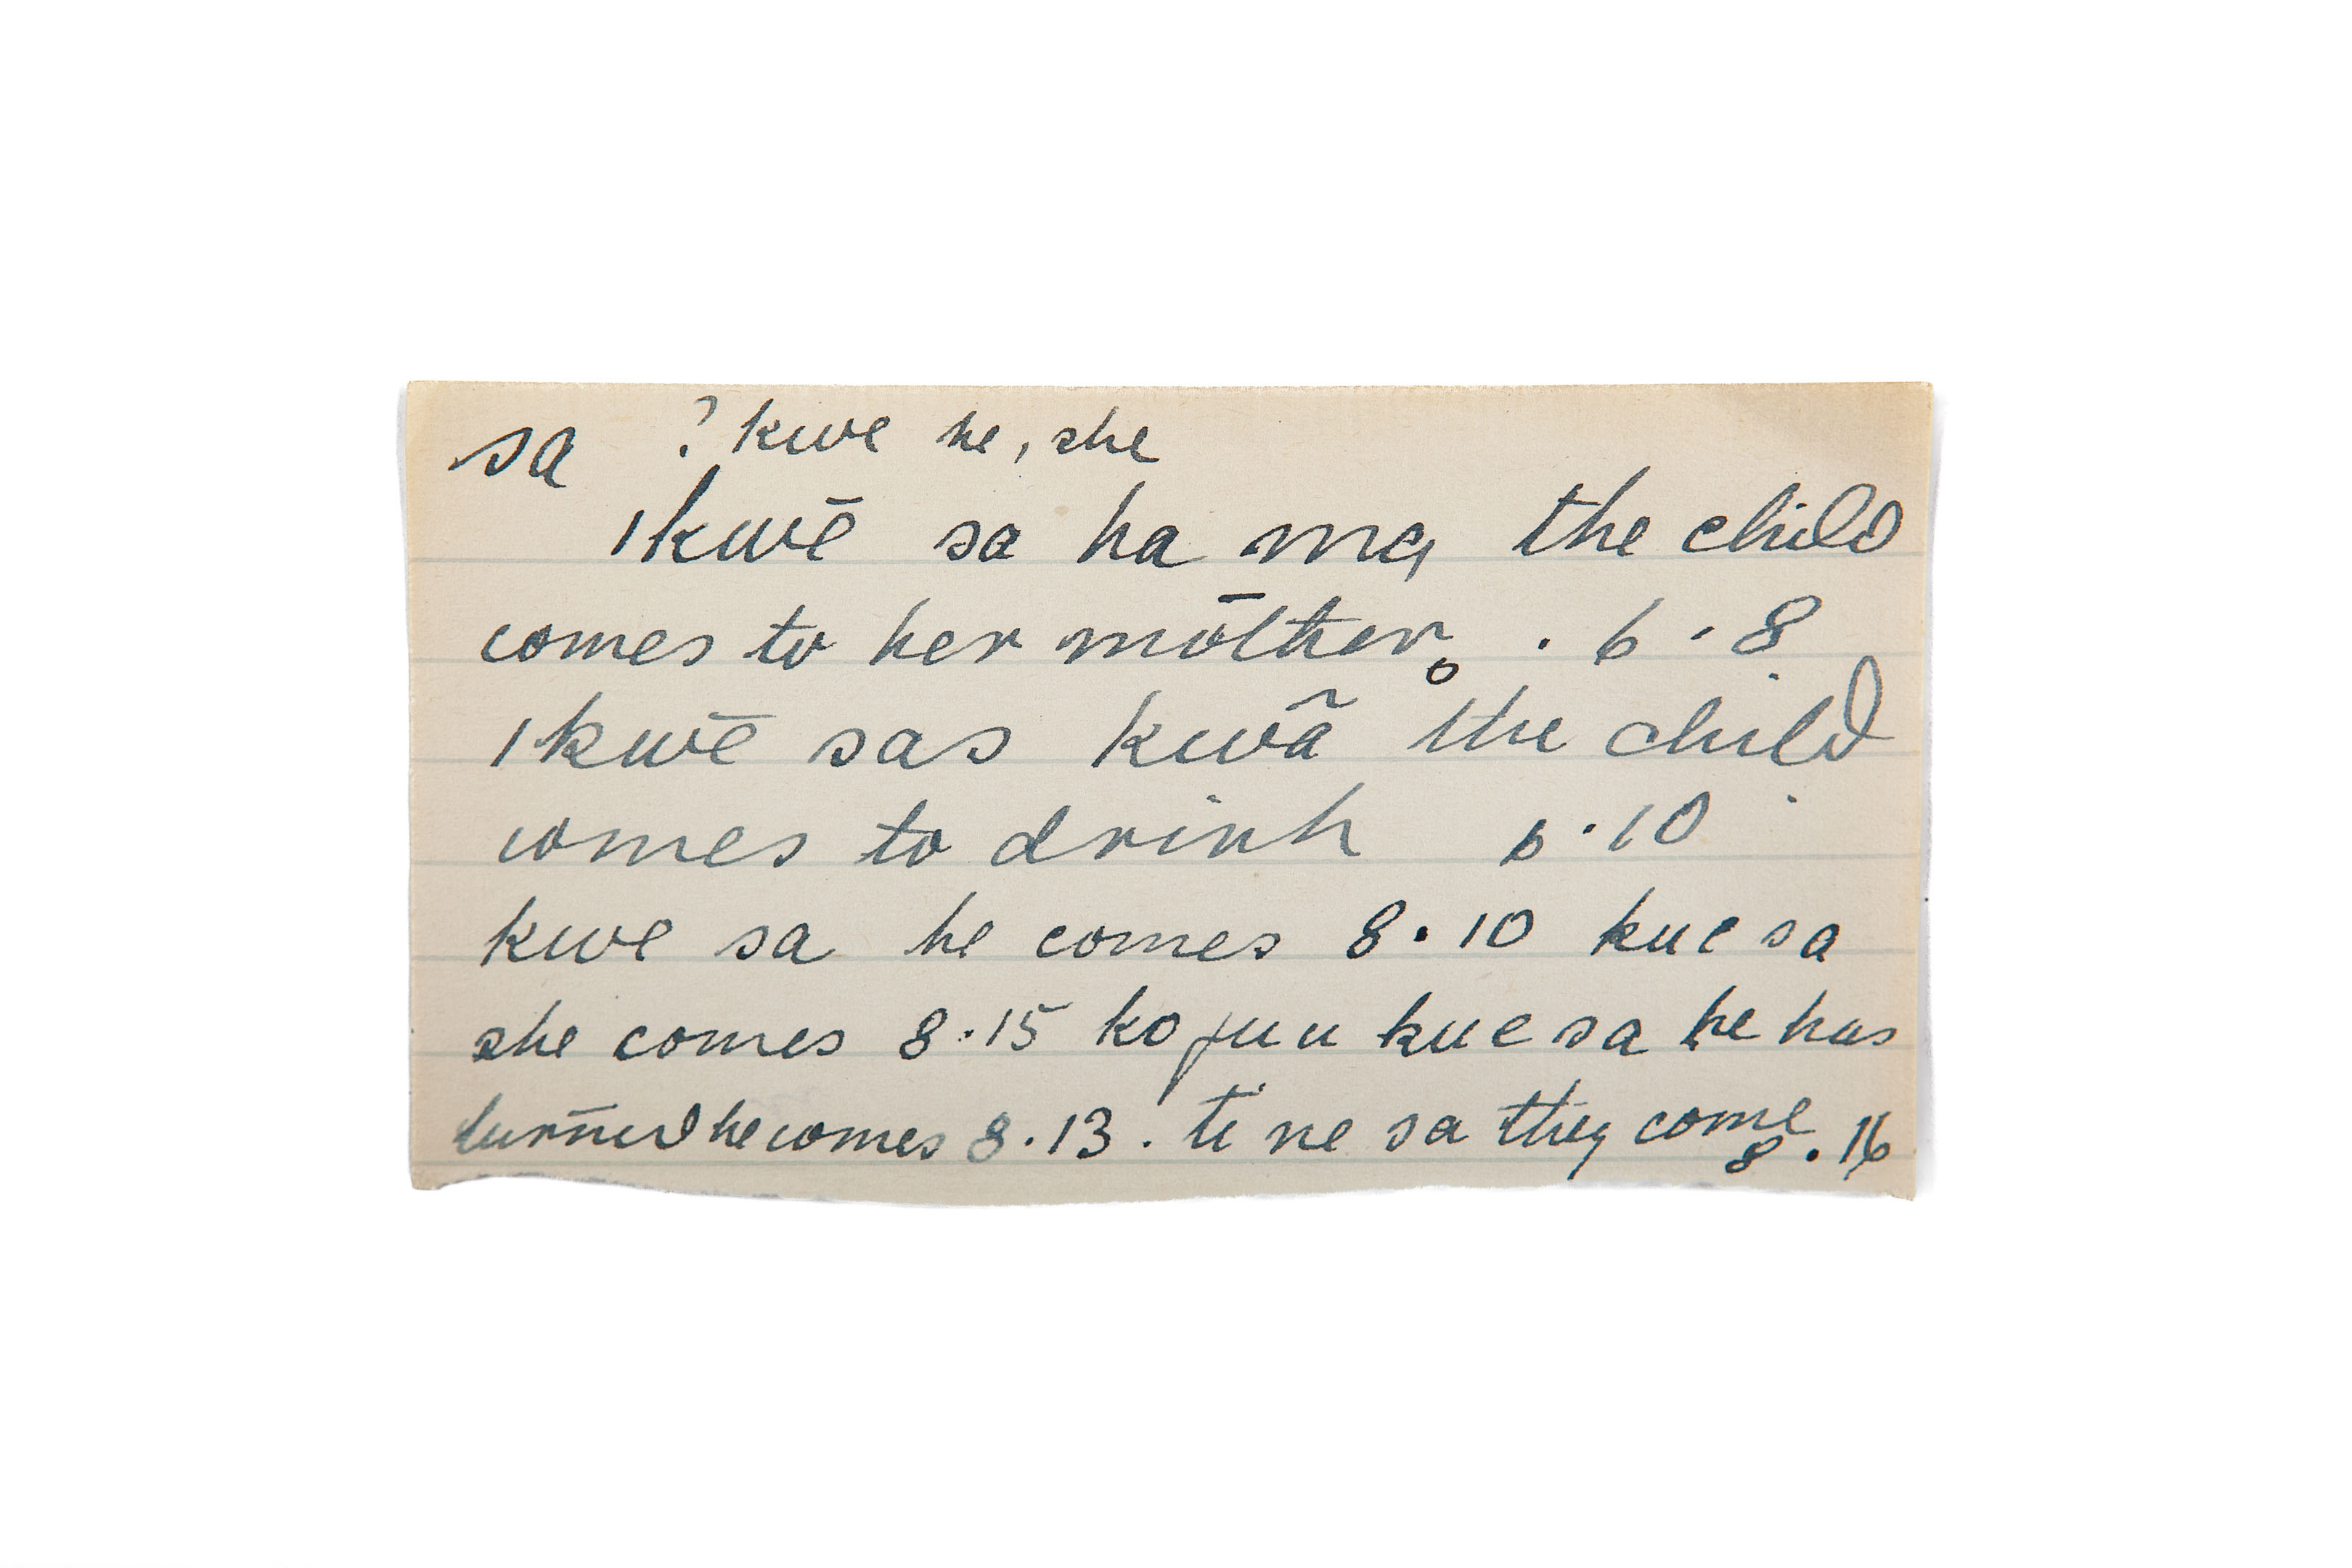 sa ? kwe he, she
ıkwē sa ha ma, the child
comes to her mother. . 6 . 8
ıkwē sas kwã the child
comes to drink 6 . 10
kwe sa he comes 8 . 10 kue sa
she comes 8 . 15 ko ʃuu kue sa he has
turned he comes 8 . 13 . ti ne sa they come
8 . 16